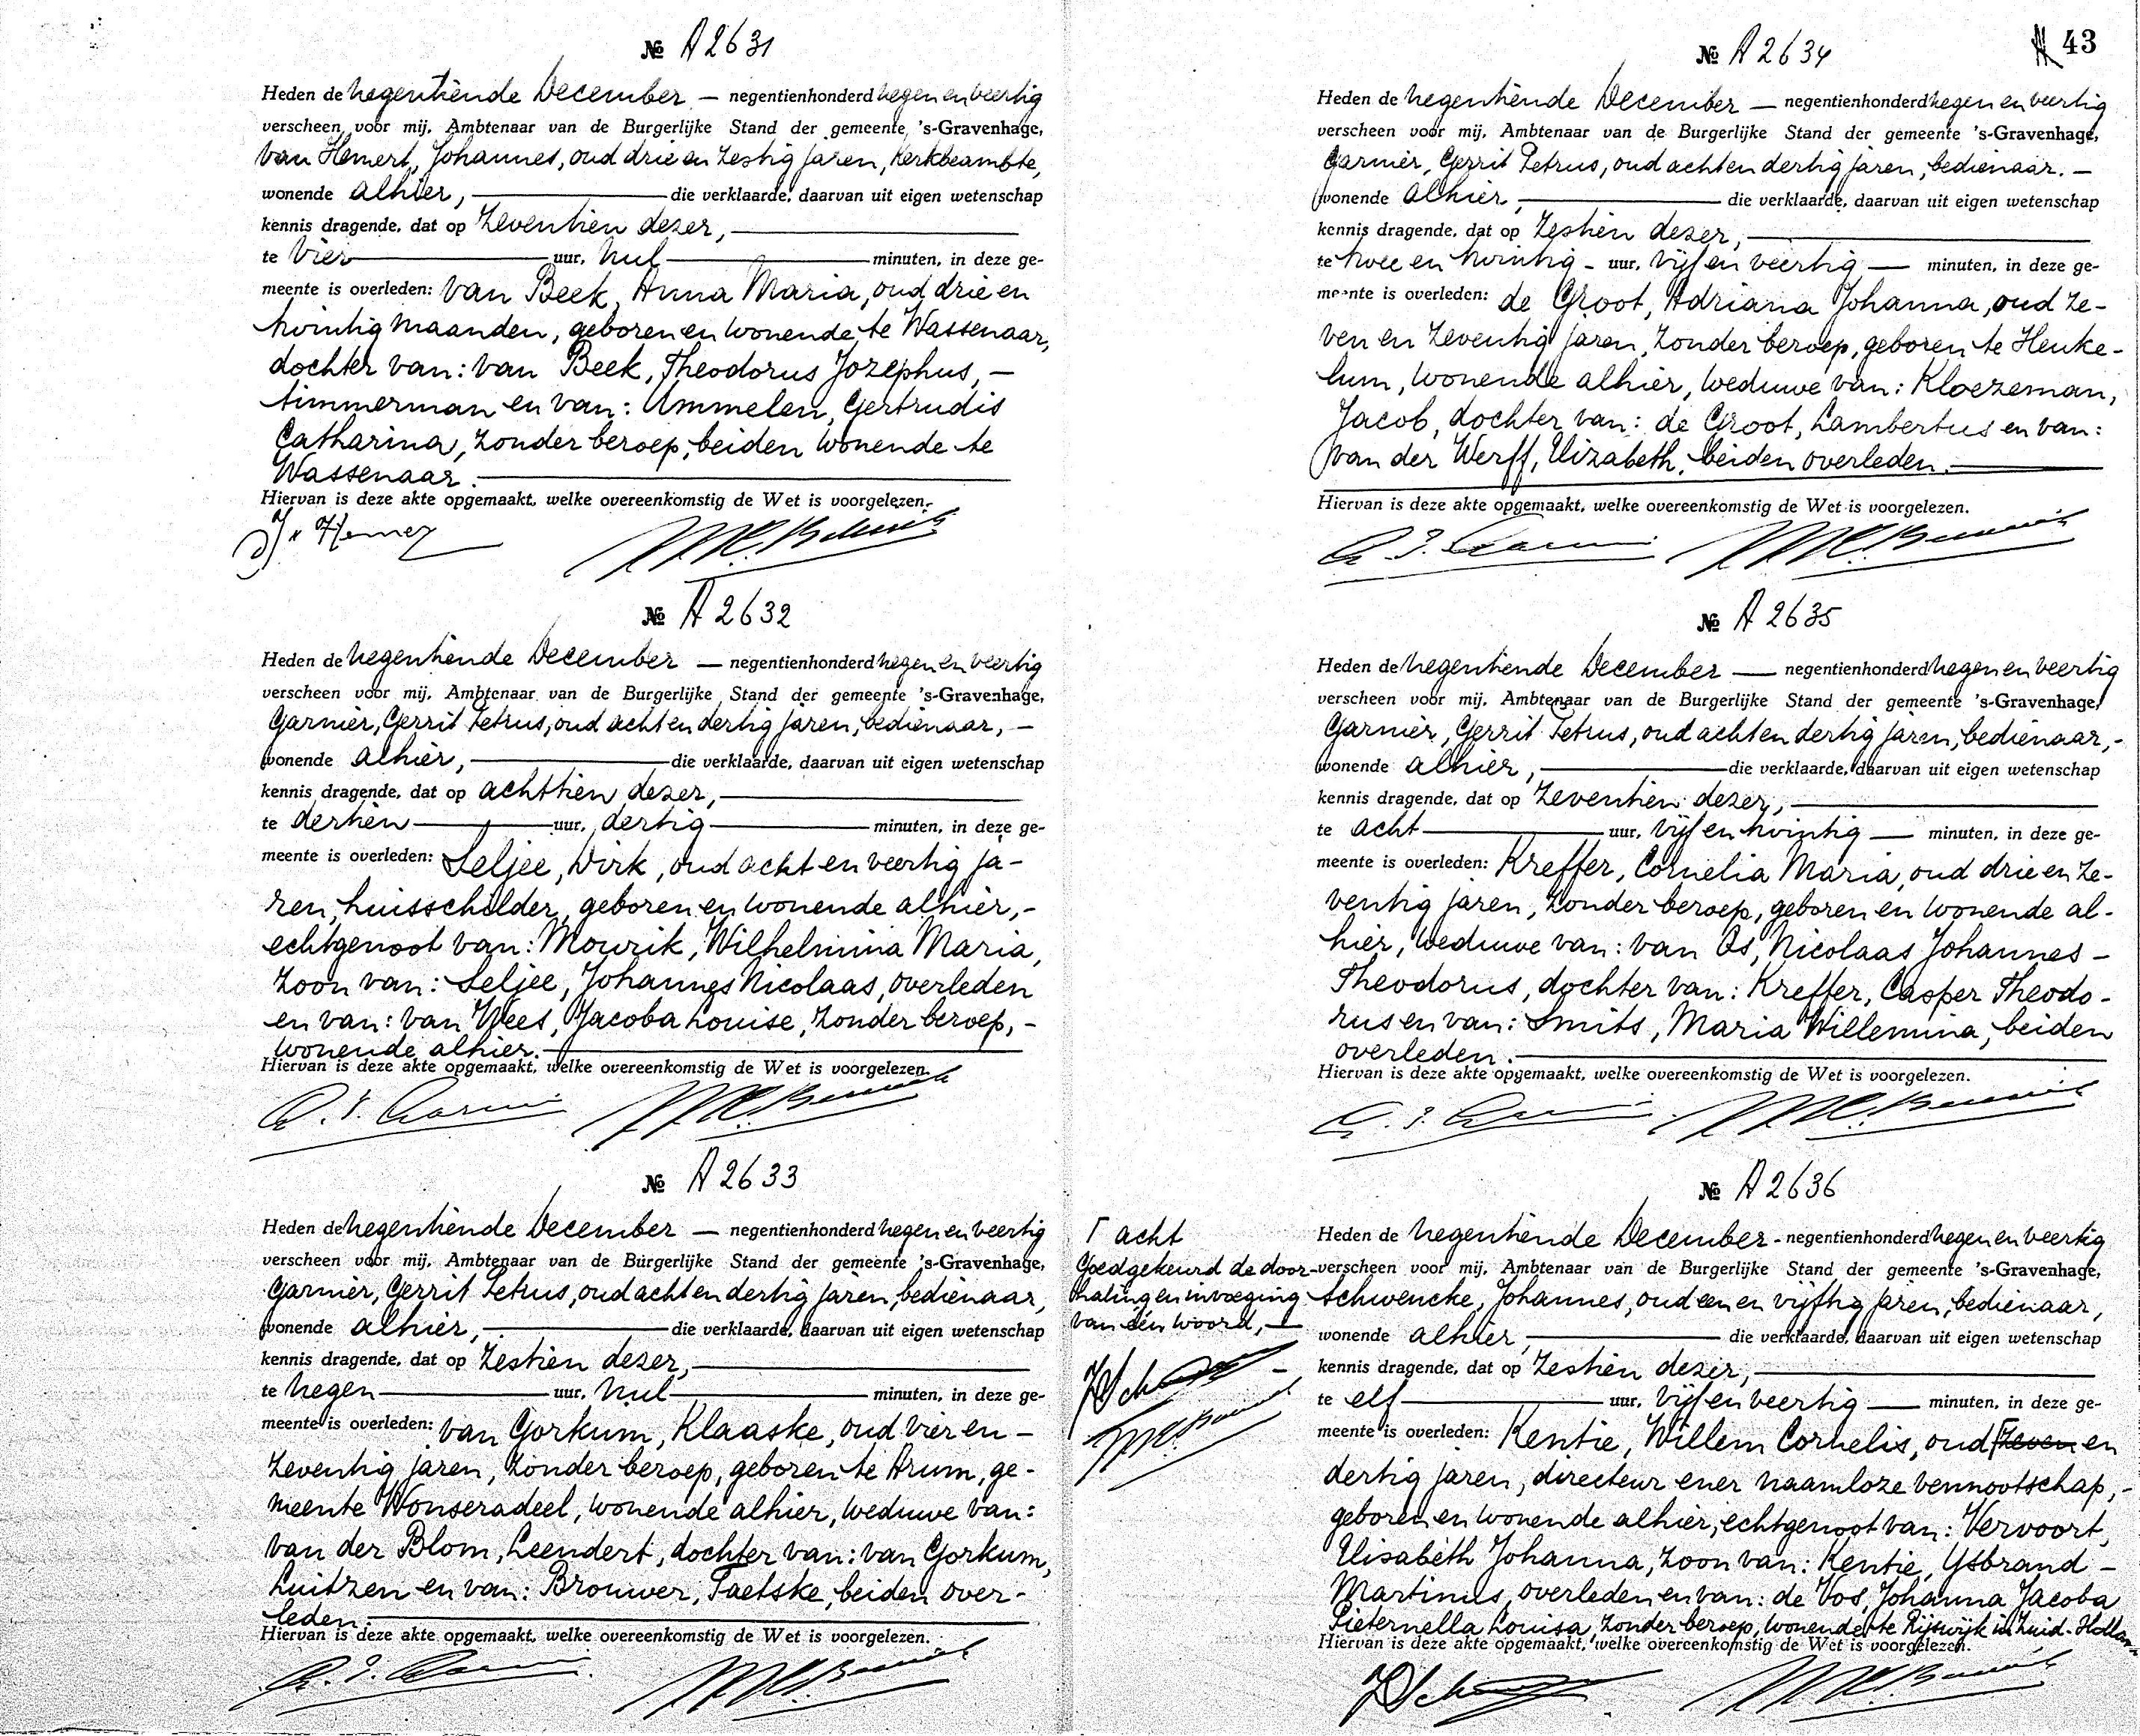 № A 2631
Heden de negentiende December — negentienhonderd negen en veertig
verscheen voor mij, Ambtenaar van de Burgerlijke Stand der gemeente 's-Gravenhage,
van Hemert, Johannes, oud drie en zestig jaren, kerkbeambte,
wonende alhier, die verklaarde, daarvan uit eigen wetenschap
kennis dragende, dat op zeventien dezer,
te vier uur, nul minuten, in deze ge-
meente is overleden: van Beek, Anna Maria, oud drie en
twintig maanden, geboren en wonende te Wassenaar,
dochter van: van Beek, Theodorus Jozephus, —
timmerman en van: Ammelen, Gertrudis
Catharina, zonder beroep, beiden wonende te
Wassenaar.
Hiervan is deze akte opgemaakt, welke overeenkomstig de Wet is voorgelezen.
№ A 2632
Heden de negentiende December — negentienhonderd negen en veertig
verscheen voor mij, Ambtenaar van de Burgerlijke Stand der gemeente 's-Gravenhage,
Garnier, Gerrit Petrus, oud acht en dertig jaren, bedienaar, —
wonende alhier, die verklaarde, daarvan uit eigen wetenschap
kennis dragende, dat op achttien dezer,
te dertien uur, dertig minuten, in deze ge-
meente is overleden: Seljee, Dirk, oud acht en veertig ja-
ren, huisschilder, geboren en wonende alhier, -
echtgenoot van: Mourik, Wilhelmina Maria,
zoon van: Seljee, Johannes Nicolaas, overleden
en van: van Wees, Jacoba Louise, zonder beroep, -
wonende alhier.
Hiervan is deze akte opgemaakt, welke overeenkomstig de Wet is voorgelezen.
№ A 2633
Heden de negentiende December — negentienhonderd negen en veertig
verscheen voor mij, Ambtenaar van de Burgerlijke Stand der gemeente 's-Gravenhage,
Garnier, Gerrit Petrus, oud acht en dertig jaren, bedienaar,
wonende alhier, die verklaarde, daarvan uit eigen wetenschap
kennis dragende, dat op zestien dezer,
te negen uur, nul minuten, in deze ge-
meente is overleden: van Gorkum, Klaaske, oud vier en -
zeventig jaren, zonder beroep, geboren te Arum, ge-
meente Wonseradeel, wonende alhier, weduwe van:
van der Blom, Leendert, dochter van: van Gorkum,
Luitzen en van: Brouwer, Taetske, beiden over-
leden.
Hiervan is deze akte opgemaakt, welke overeenkomstig de Wet is voorgelezen.
43
№ A 2634
Heden de negentiende December — negentienhonderd negen en veertig
verscheen voor mij, Ambtenaar van de Burgerlijke Stand der gemeente 's-Gravenhage,
Garnier, Gerrit Petrus, oud acht en dertig jaren, bedienaar. —
wonende alhier, die verklaarde, daarvan uit eigen wetenschap
kennis dragende, dat op zestien dezer,
te twee en twintig - uur, vijf en veertig — minuten, in deze ge-
meente is overleden: de Groot, Adriana Johanna, oud ze-
ven en zeventig jaren, zonder beroep, geboren te Heuke-
lum, wonende alhier, weduwe van: Kloezeman,
Jacob, dochter van: de Groot, Lambertus en van:
van der Werff, Elizabeth, beiden overleden.
Hiervan is deze akte opgemaakt, welke overeenkomstig de Wet is voorgelezen.
№ A 2635
Heden de negentiende December — negentienhonderd negen en veertig
verscheen voor mij, Ambtenaar van de Burgerlijke Stand der gemeente 's-Gravenhage,
Garnier, Gerrit Petrus, oud acht en dertig jaren, bedienaar, -
wonende alhier, die verklaarde, daarvan uit eigen wetenschap
kennis dragende, dat op zeventien dezer,
te acht uur, vijf en twintig — minuten, in deze ge-
meente is overleden: Kreffer, Cornelia Maria, oud drie en ze-
ventig jaren, zonder beroep, geboren en wonende al-
hier, weduwe van: van Os, Nicolaas Johannes -
Theodorus, dochter van: Kreffer, Casper Theodo-
rus en van: Smits, Maria Willemina, beiden
overleden.
Hiervan is deze akte opgemaakt, welke overeenkomstig de Wet is voorgelezen.
№ A 2636
Γ acht
Goedgekeurd de door-
haling en invoeging
van één woord, —
Heden de negentiende December - negentienhonderd negen en veertig
verscheen voor mij, Ambtenaar van de Burgerlijke Stand der gemeente 's-Gravenhage,
Schwencke, Johannes, oud een en vijftig jaren, bedienaar,
wonende alhier, die verklaarde, daarvan uit eigen wetenschap
kennis dragende, dat op zestien dezer,
te elf uur, vijf en veertig — minuten, in deze ge-
meente is overleden: Kentie, Willem Cornelis, oud Γzeven en
dertig jaren, directeur ener naamloze vennootschap, -
geboren en wonende alhier, echtgenoot van: Vervoort,
Elisabeth Johanna, zoon van: Kentie, Ysbrand -
Martinus, overleden en van: de Vos, Johanna Jacoba
Pieternella Louisa, zonder beroep, wonende te Rijswijk in Zuid-Holland
Hiervan is deze akte opgemaakt, welke overeenkomstig de Wet is voorgelezen.